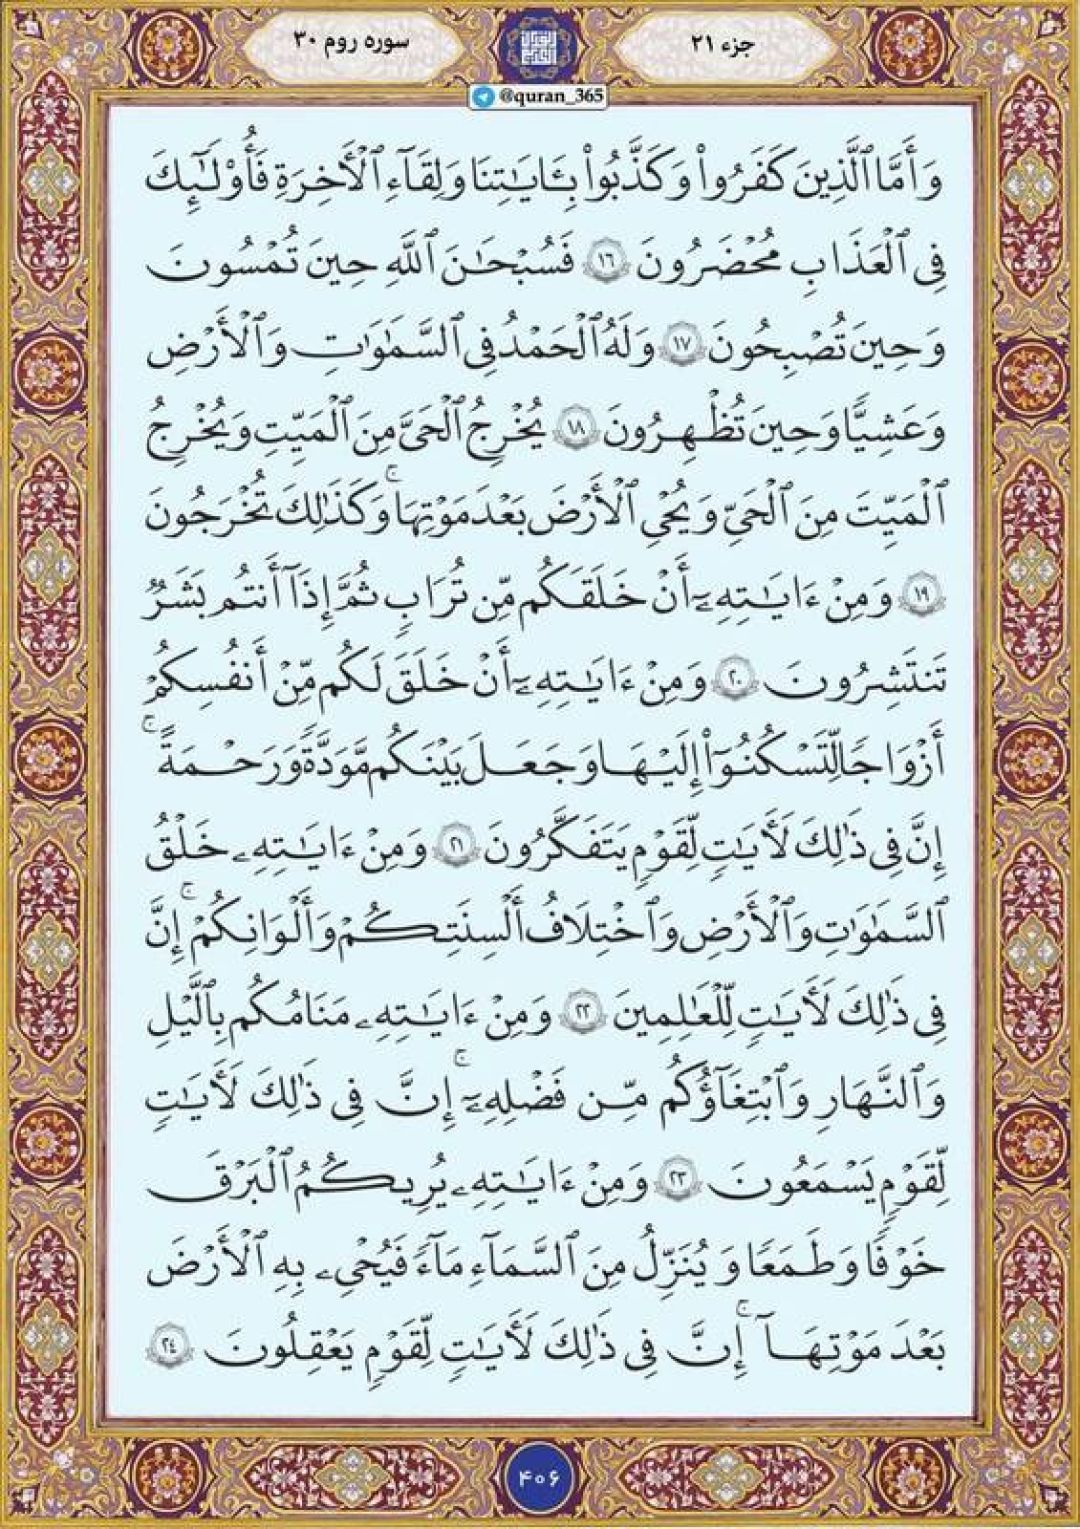 جزء ۲۱
سوره روم ۳۰
@quran_365
وَأَمَّا ٱلَّذِينَ كَفَرُوا۟ وَكَذَّبُوا۟ بِـَٔايَـٰتِنَا وَلِقَآءِ ٱلْـَٔاخِرَةِ فَأُو۟لَـٰٓئِكَ
فِى ٱلْعَذَابِ مُحْضَرُونَ ١٦ فَسُبْحَـٰنَ ٱللَّهِ حِينَ تُمْسُونَ
وَحِينَ تُصْبِحُونَ ١٧ وَلَهُ ٱلْحَمْدُ فِى ٱلسَّمَـٰوَٰتِ وَٱلْأَرْضِ
وَعَشِيًّا وَحِينَ تُظْهِرُونَ ١٨ يُخْرِجُ ٱلْحَىَّ مِنَ ٱلْمَيِّتِ وَيُخْرِجُ
ٱلْمَيِّتَ مِنَ ٱلْحَىِّ وَيُحْىِ ٱلْأَرْضَ بَعْدَ مَوْتِهَا ۚ وَكَذَٰلِكَ تُخْرَجُونَ
١٩ وَمِنْ ءَايَـٰتِهِۦٓ أَنْ خَلَقَكُم مِّن تُرَابٍ ثُمَّ إِذَآ أَنتُم بَشَرٌ
تَنتَشِرُونَ ٢٠ وَمِنْ ءَايَـٰتِهِۦٓ أَنْ خَلَقَ لَكُم مِّنْ أَنفُسِكُمْ
أَزْوَٰجًا لِّتَسْكُنُوٓا۟ إِلَيْهَا وَجَعَلَ بَيْنَكُم مَّوَدَّةً وَرَحْمَةً ۚ
إِنَّ فِى ذَٰلِكَ لَـَٔايَـٰتٍ لِّقَوْمٍ يَتَفَكَّرُونَ ٢١ وَمِنْ ءَايَـٰتِهِۦ خَلْقُ
ٱلسَّمَـٰوَٰتِ وَٱلْأَرْضِ وَٱخْتِلَـٰفُ أَلْسِنَتِكُمْ وَأَلْوَٰنِكُمْ ۚ إِنَّ
فِى ذَٰلِكَ لَـَٔايَـٰتٍ لِّلْعَـٰلِمِينَ ٢٢ وَمِنْ ءَايَـٰتِهِۦ مَنَامُكُم بِٱلَّيْلِ
وَٱلنَّهَارِ وَٱبْتِغَآؤُكُم مِّن فَضْلِهِۦٓ ۚ إِنَّ فِى ذَٰلِكَ لَـَٔايَـٰتٍ
لِّقَوْمٍ يَسْمَعُونَ ٢٣ وَمِنْ ءَايَـٰتِهِۦ يُرِيكُمُ ٱلْبَرْقَ
خَوْفًا وَطَمَعًا وَيُنَزِّلُ مِنَ ٱلسَّمَآءِ مَآءً فَيُحْىِۦ بِهِ ٱلْأَرْضَ
بَعْدَ مَوْتِهَآ ۚ إِنَّ فِى ذَٰلِكَ لَـَٔايَـٰتٍ لِّقَوْمٍ يَعْقِلُونَ ٢٤
۴۰۶